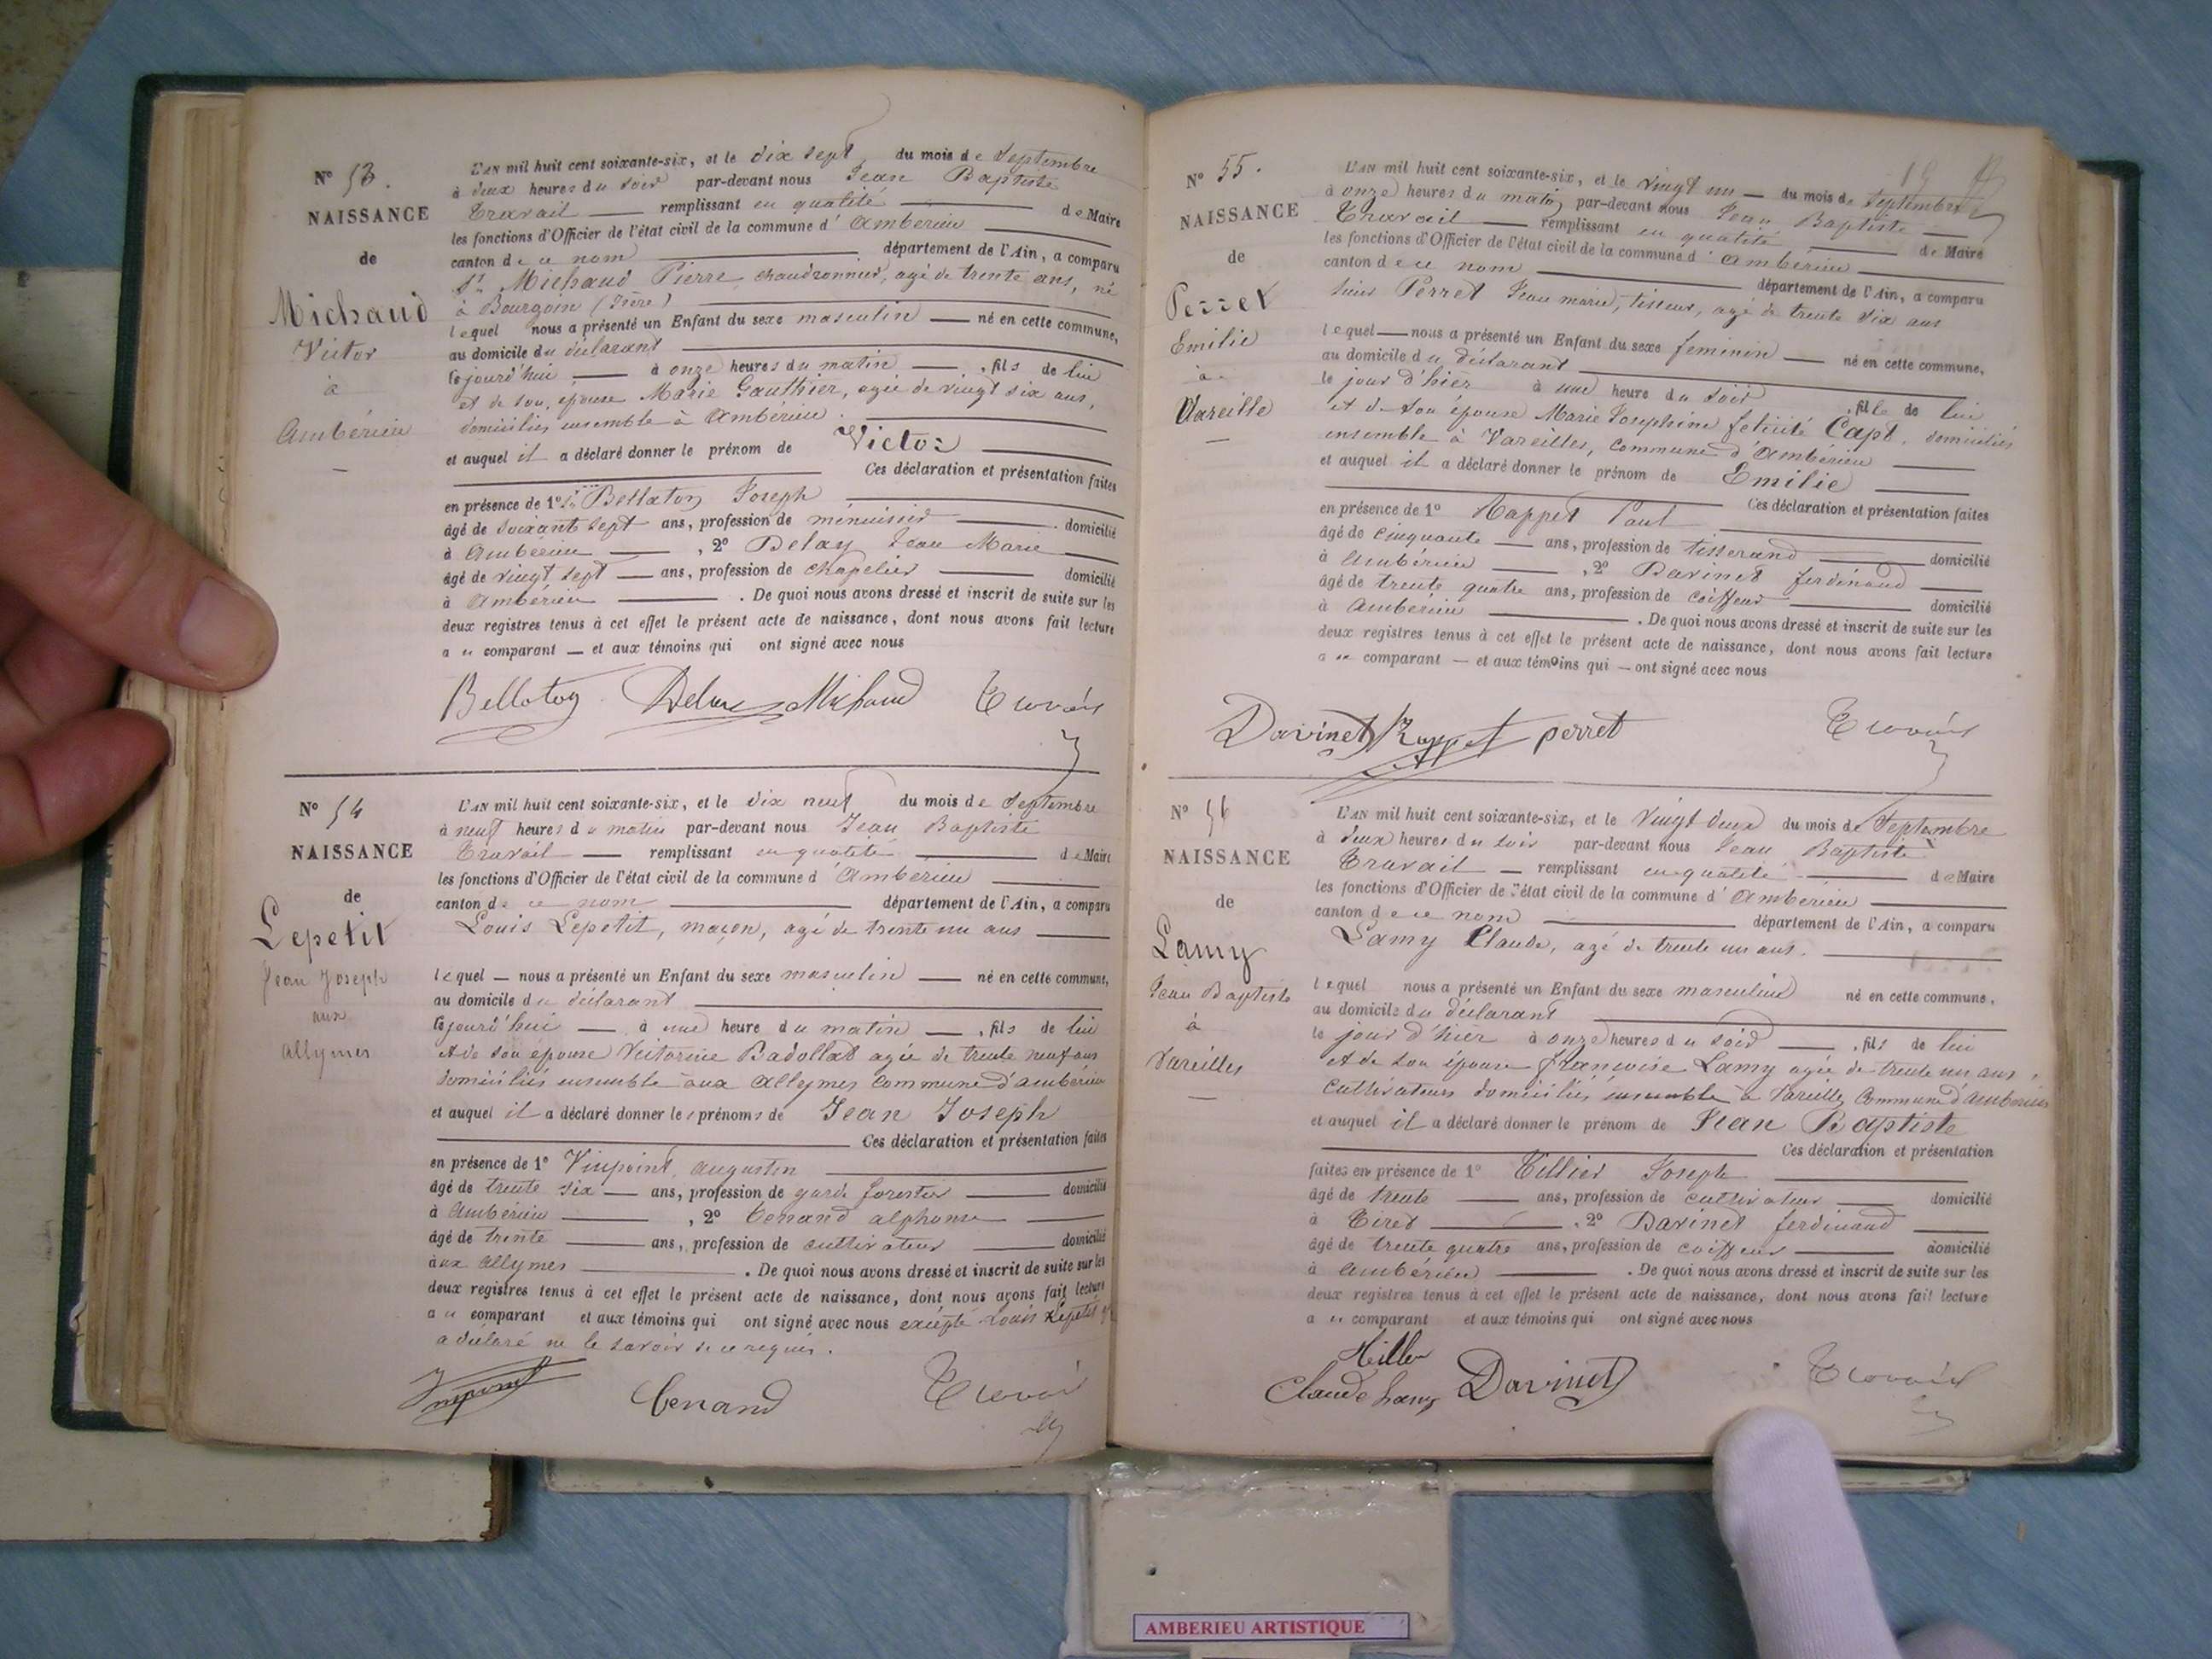 N° 53.
NAISSANCE
de
Michaud
Victor
à
Ambérieu
L'AN mil huit cent soixante-six, et le dix sept du mois de Septembre
à deux heures du soir par-devant nous Jean Baptiste
Travail remplissant en qualité de Maire
les fonctions d'Officier de l'état civil de la commune d'Ambérieu
canton de ce nom département de l'Ain, a comparu
Sr Michaud Pierre, chaudronnier, agé de trente ans, né
à Bourgoin (Isère)
lequel nous a présenté un Enfant du sexe masculin né en cette commune,
au domicile du déclarant
cejourd'hui à onze heures du matin, fils de lui
et de son épouse Marie Gauthier, agée de vingt six ans,
domiciliés ensemble à Ambérieu.
et auquel il a déclaré donner le prénom de Victor
Ces déclaration et présentation faites
en présence de 1° Sr Bellaton Joseph
âgé de soixante sept ans, profession de ménuisier domicilié
à Ambérieu, 2° Delay Jean Marie
âgé de vingt sept ans, profession de chapelier domicilié
à Ambérieu. De quoi nous avons dressé et inscrit de suite sur les
deux registres tenus à cet effet le présent acte de naissance, dont nous avons fait lecture
au comparant et aux témoins qui ont signé avec nous
Bellaton Delay Michaud Travail
N° 54
NAISSANCE
de
Lepetit
Jean Joseph
aux
allymes
L'AN mil huit cent soixante-six, et le dix neuf du mois de Septembre
à neuf heures du matin par-devant nous Jean Baptiste
Travail remplissant en qualité de Maire
les fonctions d'Officier de l'état civil de la commune d'Ambérieu
canton de ce nom département de l'Ain, a comparu
Louis Lepetit, maçon, agé de trente un ans
lequel nous a présenté un Enfant du sexe masculin né en cette commune,
au domicile du déclarant
cejourd'hui à une heure du matin, fils de lui
et de son épouse Victorine Badollat agée de trente neuf ans
domiciliés ensemble aux allymes commune d'ambérieu
et auquel il a déclaré donner les prénoms de Jean Joseph
Ces déclaration et présentation faites
en présence de 1° Vinpoint augustin
âgé de trente six ans, profession de garde forestier domicilié
à Ambérieu, 2° Tenand alphonse
âgé de trente ans, profession de cultivateur domicilié
aux allymes. De quoi nous avons dressé et inscrit de suite sur les
deux registres tenus à cet effet le présent acte de naissance, dont nous avons fait lecture
au comparant et aux témoins qui ont signé avec nous excepté Louis Lepetit
a déclaré ne le savoir de ce requis.
Tenand Travail
N° 55.
NAISSANCE
de
Perret
Emilie
à
Vareille
L'AN mil huit cent soixante-six, et le vingt un du mois de Septembre
à onze heures du matin par-devant nous Jean Baptiste
Travail remplissant en qualité de Maire
les fonctions d'Officier de l'état civil de la commune d'Ambérieu
canton de ce nom département de l'Ain, a comparu
Perret Jean marie, tisseur, agé de trente six ans
lequel nous a présenté un Enfant du sexe féminin né en cette commune,
au domicile du déclarant
le jour d'hier à une heure du soir, fille de lui
et de son épouse Marie Josephine félicité Capt, domiciliés
ensemble à Vareilles, commune d'Ambérieu
et auquel il a déclaré donner le prénom de Emilie
Ces déclaration et présentation faites
en présence de 1° Rappet Paul
âgé de cinquante ans, profession de tisserand domicilié
à Ambérieu, 2° Davinet ferdinand
âgé de trente quatre ans, profession de coiffeur domicilié
à Ambérieu. De quoi nous avons dressé et inscrit de suite sur les
deux registres tenus à cet effet le présent acte de naissance, dont nous avons fait lecture
au comparant et aux témoins qui ont signé avec nous
Davinet Rappet perret Travail
N° 56
NAISSANCE
de
Lamy
Jean Baptiste
à
Vareilles
L'AN mil huit cent soixante-six, et le vingt deux du mois de Septembre
à deux heures du soir par-devant nous Jean Baptiste
Travail remplissant en qualité de Maire
les fonctions d'Officier de l'état civil de la commune d'Ambérieu
canton de ce nom département de l'Ain, a comparu
Lamy Claude, agé de trente un ans.
lequel nous a présenté un Enfant du sexe masculin né en cette commune,
au domicile du déclarant
le jour d'hier à onze heures du soir, fils de lui
et de son épouse françoise Lamy agée de trente un ans,
cultivateurs domiciliés ensemble à Vareilles Commune d'ambérieu
et auquel il a déclaré donner le prénom de Jean Baptiste
Ces déclaration et présentation
faites en présence de 1° Tillier Joseph
âgé de trente ans, profession de cultivateur domicilié
à Tiret, 2° Davinet ferdinand
âgé de trente quatre ans, profession de coiffeur domicilié
à Ambérieu. De quoi nous avons dressé et inscrit de suite sur les
deux registres tenus à cet effet le présent acte de naissance, dont nous avons fait lecture
au comparant et aux témoins qui ont signé avec nous
Tillier
Claude Lamy Davinet Travail
AMBERIEU ARTISTIQUE